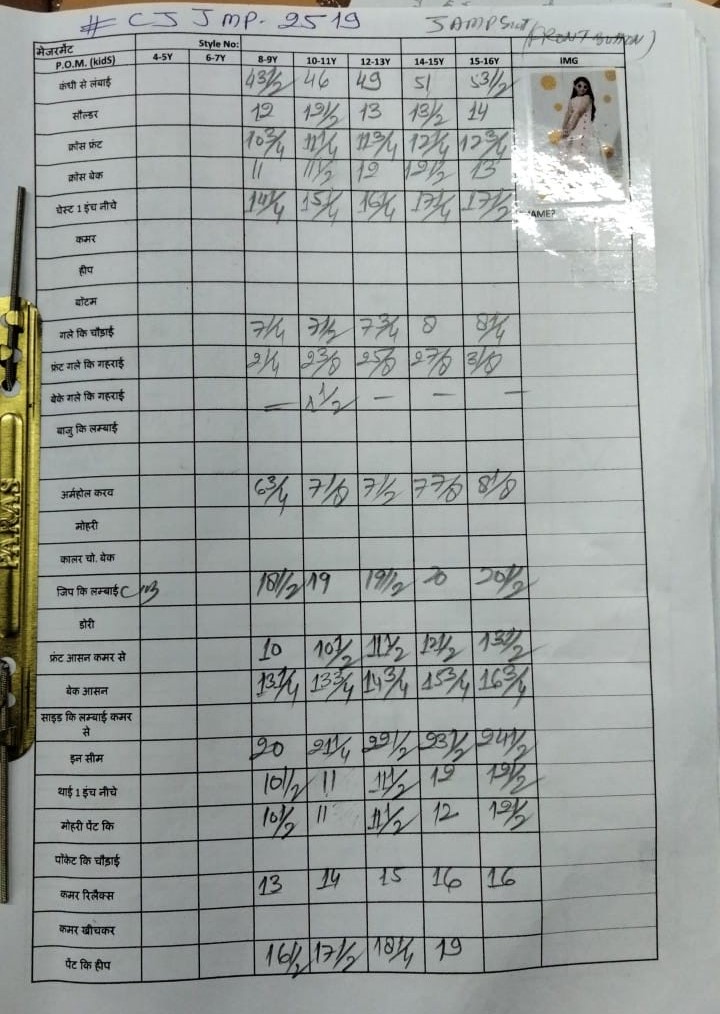 # CJ JMP. 2519
JAMPSuit (FRONT BUTTON)
मेजरमेंट Style No:
P.O.M. (kidS) 4-5Y 6-7Y 8-9Y 10-11Y 12-13Y 14-15Y 15-16Y IMG
कंधी से लंबाई 431/2 46 49 51 531/2
सौल्डर 12 12 1/2 13 13 1/2 14
क्रोस फ्रंट 10 3/4 11 1/4 11 3/4 12 1/4 12 3/4
क्रोस बेक 11 11 1/2 12 12 1/2 13
चेस्ट 1 इंच नीचे 14 1/4 15 1/4 16 1/4 17 1/4 17 1/2
NAME?
कमर
हीप
बॉटम
गले कि चौड़ाई 7 1/4 7 1/2 7 3/4 8 8 1/4
फ्रंट गले कि गहराई 2 1/4 2 3/8 2 5/8 2 7/8 3 1/8
बेके गले कि गहराई — 1 1/2 — — —
बाजु कि लम्बाई
अर्महोल करव 6 3/4 7 1/8 7 1/2 7 7/8 8 1/8
मोहरी
कालर चो. बेक
जिप कि लम्बाई CB 18 1/2 19 19 1/2 20 20 1/2
डोरी
फ्रंट आसन कमर से 10 10 1/2 11 1/2 12 1/2 13 1/2
बेक आसन 13 1/4 13 3/4 14 3/4 15 3/4 16 3/4
साइड कि लम्बाई कमर
से
इन सीम 20 21 1/4 22 1/2 23 1/2 24 1/2
थाई 1 इंच नीचे 10 1/2 11 11 1/2 12 12 1/2
मोहरी पेंट कि 10 1/2 11 11 1/2 12 12 1/2
पॉकेट कि चौड़ाई
कमर रिलैक्स 13 14 15 16 16
कमर खीचकर
पेंट कि हीप 16 1/2 17 1/2 18 1/4 19
PARAS